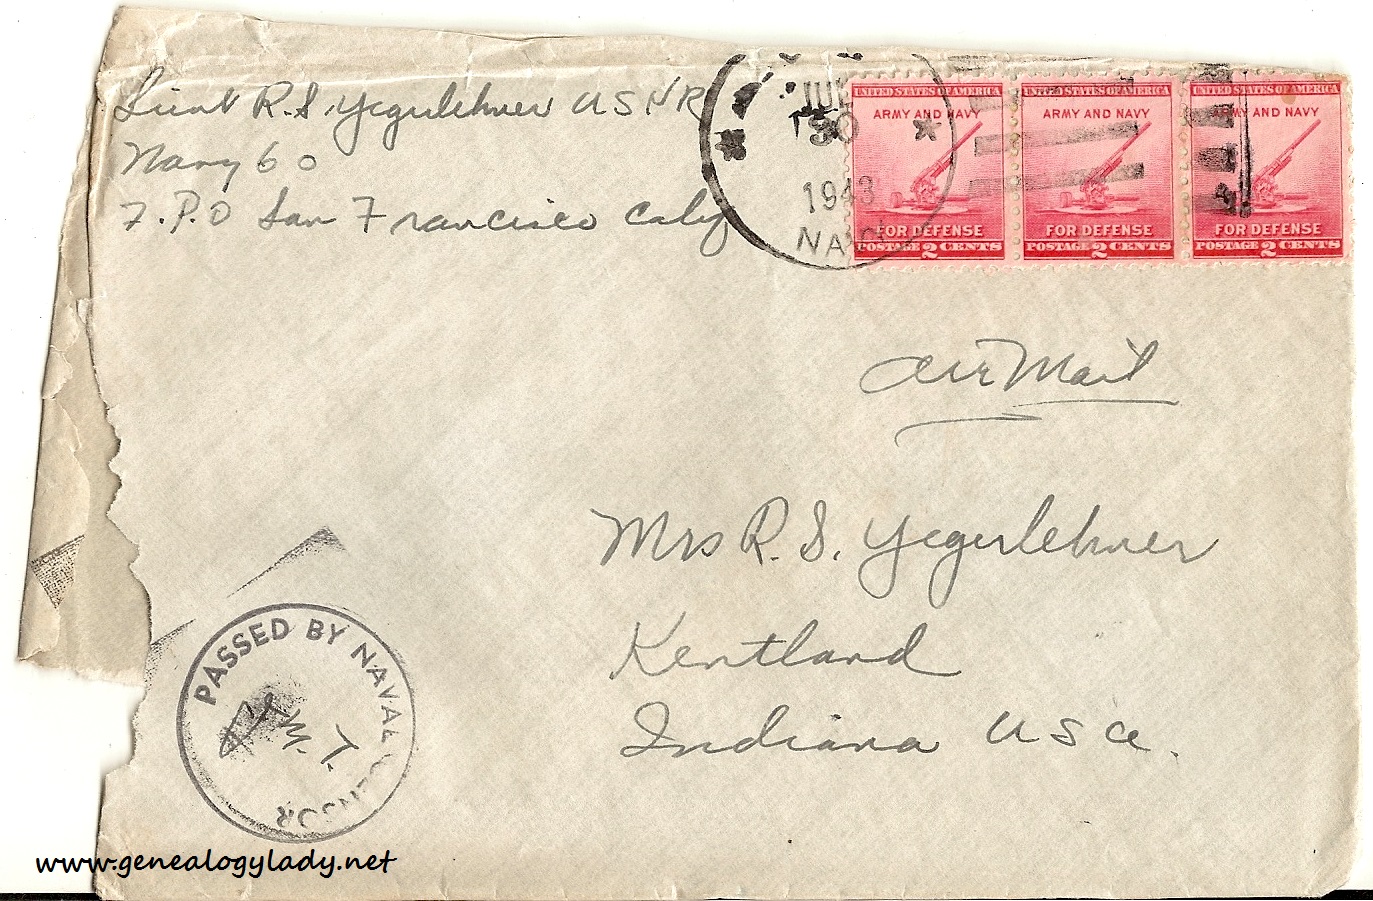 Lieut R.S. Yegerlehner USNR
Navy 60
F.P.O San Francisco Calif
1943
UNITED STATES OF AMERICA
ARMY AND NAVY
FOR DEFENSE
POSTAGE 2 CENTS
UNITED STATES OF AMERICA
ARMY AND NAVY
FOR DEFENSE
POSTAGE 2 CENTS
UNITED STATES OF AMERICA
ARMY AND NAVY
FOR DEFENSE
POSTAGE 2 CENTS
Air Mail
Mrs R. S. Yegerlehner
Kentland
Indiana USA.
PASSED BY NAVAL CENSOR
www.genealogylady.net